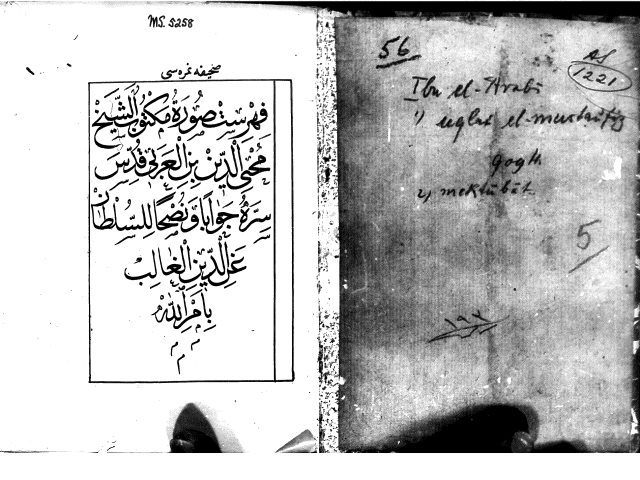 MS. 5258
صحيفه نمره سی
فهرست صورة مكتوب الشيخ
محيي الدين بن العربي قدس
سره جوابا ونصحا للسلطان
الدين الغالب
بامر الله
م م
م
56
AS
1221
Ibn el-Arabî
1) uqlat el-mustaufiz
2) mektûbât
5